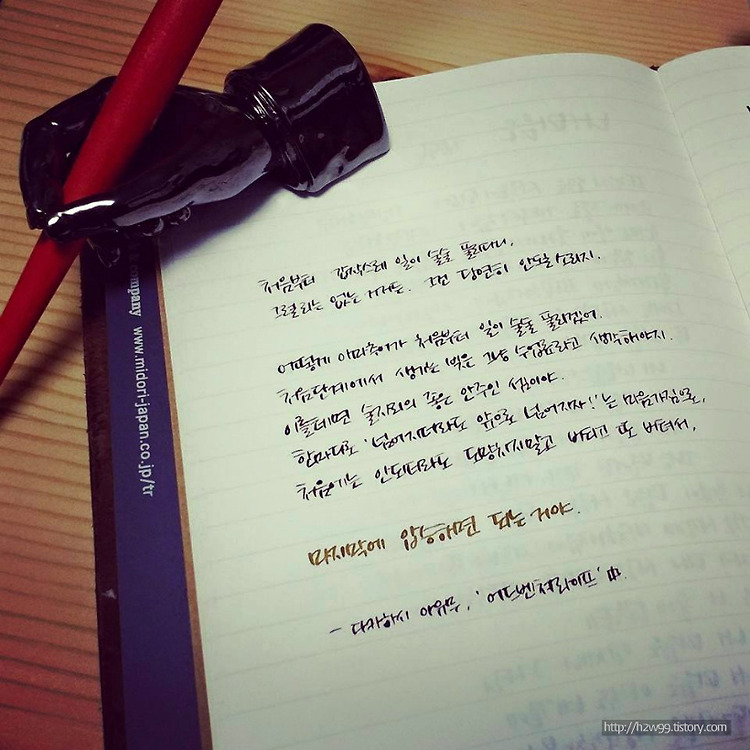 company www.midori-japan.co.jp/tr
처음부터 갑작스레 일이 술술 풀리다니,
그럴리는 없는 거거든. 그건 당연히 안되는 소리지.
어떻게 아마추어가 처음부터 일이 술술 풀리겠어.
처음단계에서 생기는 빚은 그냥 수업료라고 생각해야지.
이를테면 술자리의 좋은 안주인 셈이야.
한마디로 '넘어지더라도 앞으로 넘어지자!'는 마음가짐으로,
처음에는 안되더라도 도망치지말고 버티고 또 버텨서,
마지막에 압승하면 되는 거야.
- 다카하시 아유무, '어드벤쳐라이프' 中.
http://h2w99.tistory.com